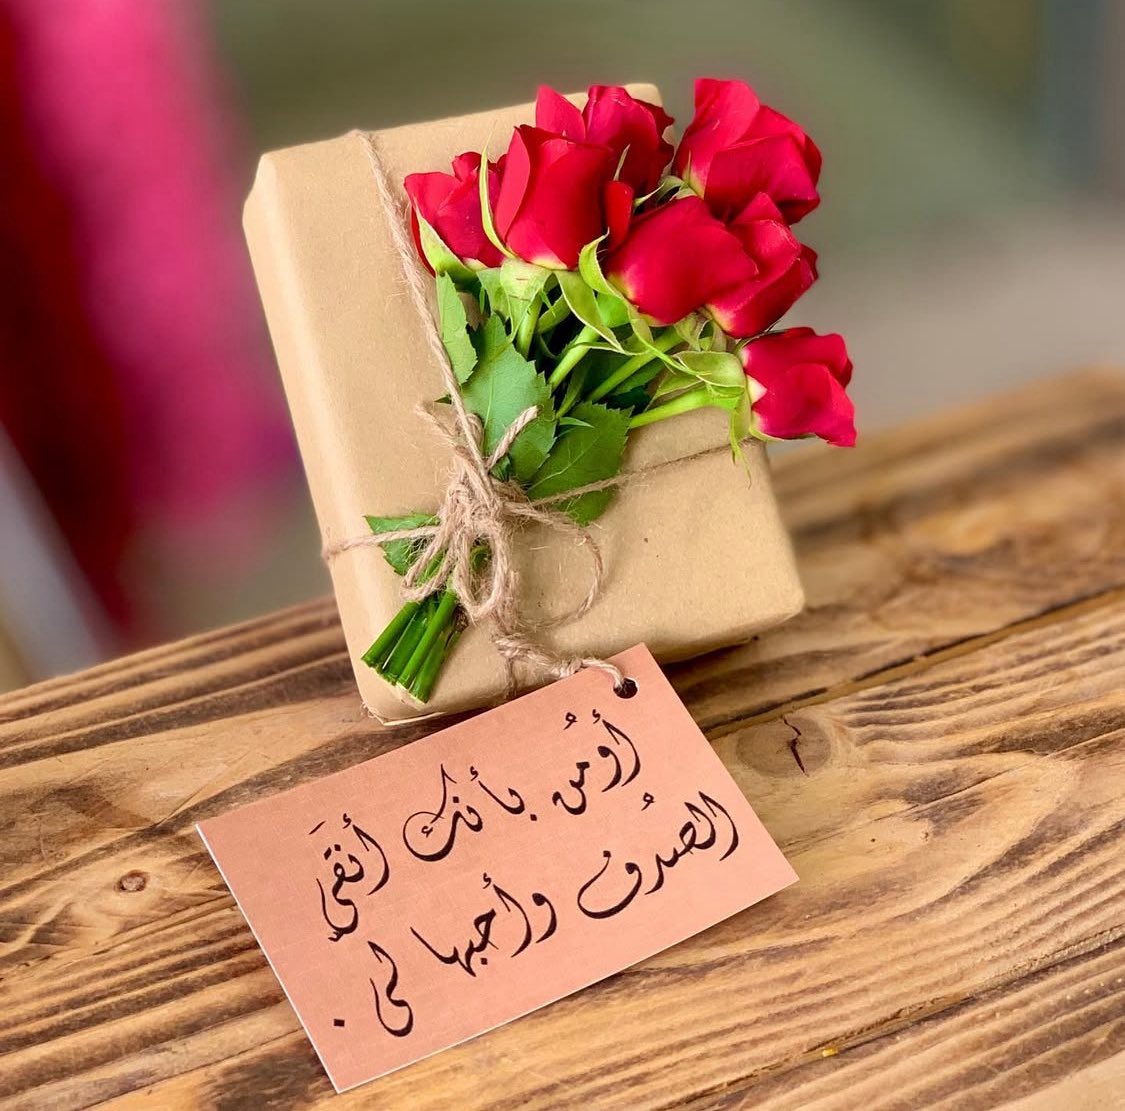 أومُن بأنك أنقَى
الصُدف وأحبها لي .